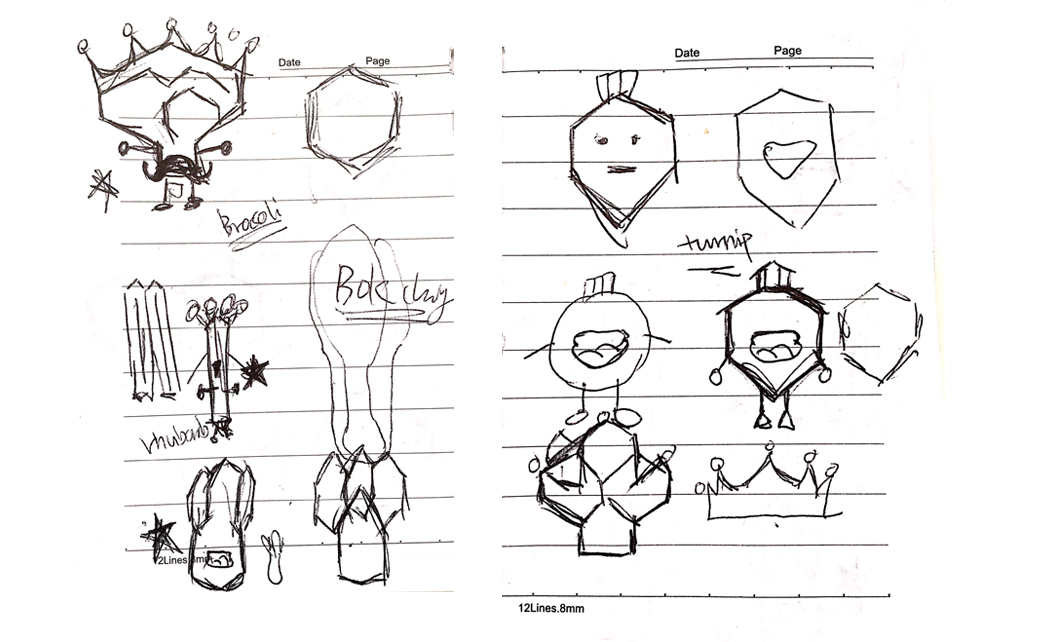 Date Page
Brocoli
Bok choy
rhubarb
2Lines.8mm
Date Page
turnip
12Lines.8mm